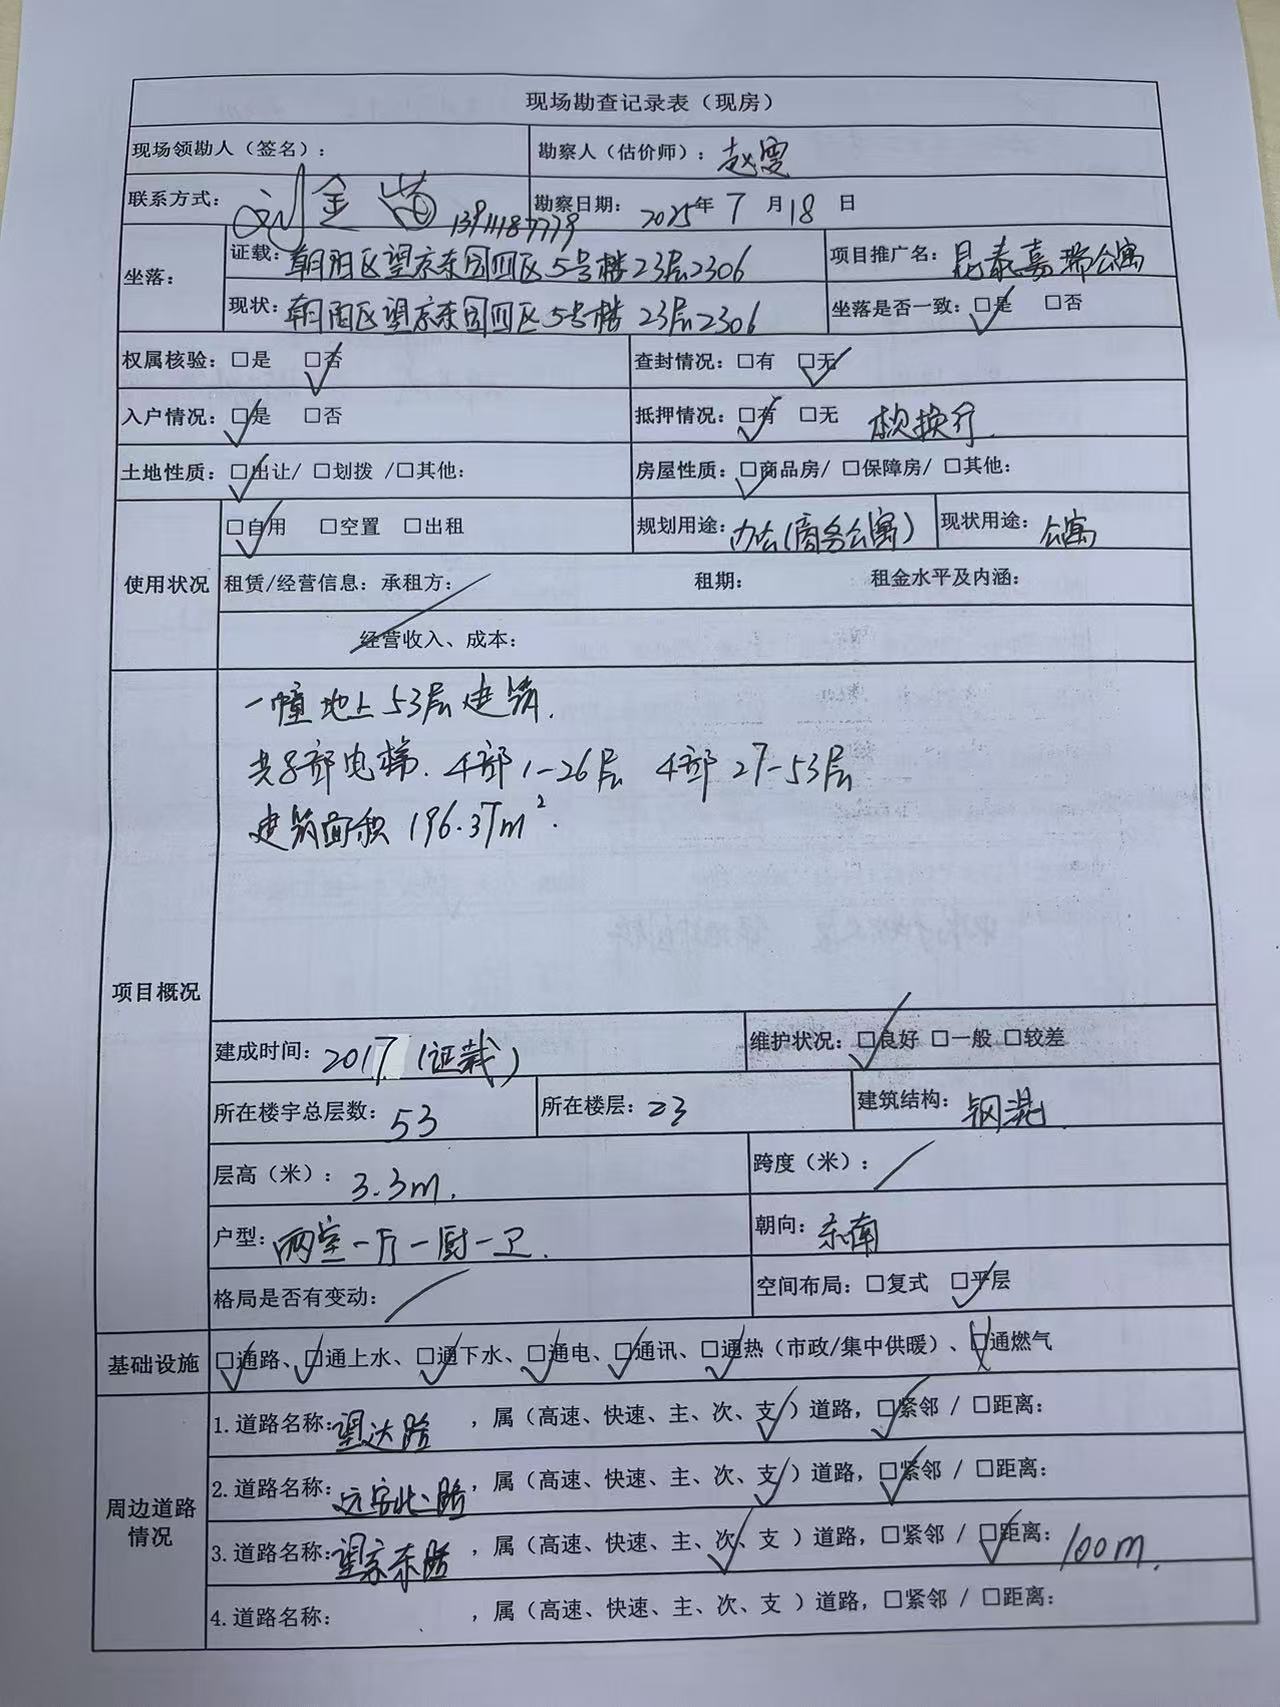 现场勘查记录表（现房）
现场领勘人（签名）：
勘察人（估价师）：赵雯
联系方式：刘金苗
勘察日期：2025年7月18日
坐落：
证载：朝阳区望京东园四区5号楼23层2306
项目推广名：昆泰嘉瑞公寓
现状：朝阳区望京东园四区5号楼23层2306
坐落是否一致：☑是 □否
权属核验：□是 ☑否
查封情况：□有 ☑无
入户情况：☑是 □否
抵押情况：☑有 □无 换行
土地性质：☑出让/ □划拨 /□其他：
房屋性质：☑商品房/ □保障房/ □其他：
使用状况
☑自用 □空置 □出租
规划用途：办公（商务公寓）
现状用途：公寓
租赁/经营信息：承租方： 租期： 租金水平及内涵：
经营收入、成本：
项目概况
一幢地上53层建筑.
共8部电梯. 4部1-26层 4部27-53层
建筑面积196.37m².
建成时间：2017（证载）
维护状况：☑良好 □一般 □较差
所在楼宇总层数：53
所在楼层：23
建筑结构：钢混
层高（米）：3.3m.
跨度（米）：/
户型：两室一厅一厨一卫.
朝向：东南
格局是否有变动：/
空间布局：□复式 ☑平层
基础设施
☑通路、☑通上水、☑通下水、☑通电、☑通讯、☑通热（市政/集中供暖）、☑通燃气
周边道路情况
1.道路名称：望达路，属（高速、快速、主、次、支✓）道路，☑紧邻 / □距离：
2.道路名称：远安北路，属（高速、快速、主、次、支✓）道路，☑紧邻 / □距离：
3.道路名称：望京东路，属（高速、快速、主、次✓、支）道路，□紧邻 / ☑距离：100m.
4.道路名称： ，属（高速、快速、主、次、支）道路，□紧邻 / □距离：